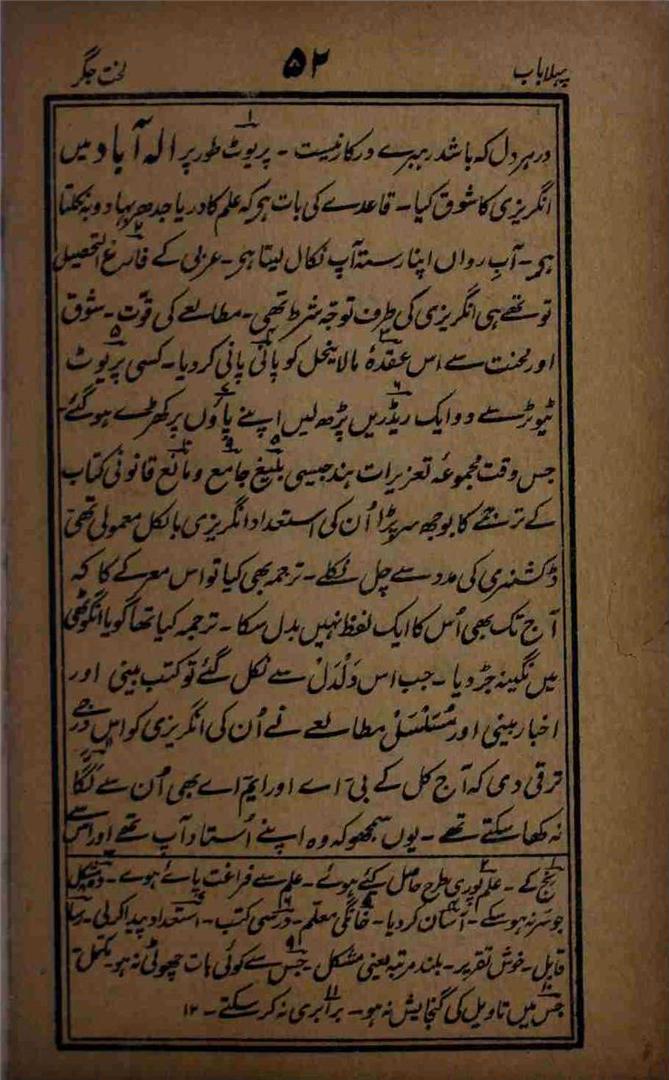 پہلا باب ۵۲ لخت جگر
در ہر دل کہ باشد رہبرے درکار نیست ۔ پریوٹ طور پر الہ آباد میں
انگریزی کا شوق کیا ۔ قاعدے کی بات ہر کہ علم کا دریا جدھر بہا دو بہ نکلتا
ہر ۔ آبِ رواں اپنا رستہ آپ نکال لیتا ہر ۔ عربی کے فارغ التحصیل
تو تھے ہی انگریزی کی طرف توجہ شرط تھی ۔ مطالعے کی قوّت ۔ شوق
اور محنت سے اس عقدۂ مالا ینحل کو پانی پانی کر دیا ۔ کسی پریوٹ
ٹیوٹر سے دو ایک ریڈریں پڑھ لیں اپنے پاؤں پر کھڑے ہو گئے ۔
جس وقت مجموعہ تعزیرات ہند جیسی بلیغ جامع و مانع قانونی کتاب
کے ترجمے کا بوجھ سر پڑا اُن کی استعداد انگریزی بالکل معمولی تھی
ڈکشنری کی مدد سے چل نکلے ۔ ترجمہ بھی کیا تو اس معرکے کا کہ
آج تک بھی اُس کا ایک لفظ نہیں بدل سکا ۔ ترجمہ کیا تھا گویا انگوٹھی
میں نگینہ جڑ دیا ۔ جب اس دَلْدَلْ سے نکل گئے تو کتب بینی اور
اخبار بینی اور مُسَلْسَلْ مطالعے نے اُن کی انگریزی کو اس درجے
ترقی دی کہ آج کل کے بی ۔ اے اور ایم اے بھی اُن سے لگّا
نہ کھا سکتے تھے ۔ یوں سمجھو کہ وہ اپنے اُستاد آپ تھے اور اس
نج کے ۔ علم پوری طرح حاصل کیئے ہوئے ۔ علم سے فراغت پائے ہوے ۔ وہ مشکل
جو سر نہ ہو سکے ۔ آسان کر دیا ۔ خانگی معلم ۔ درسی کتب ۔ استعداد پیدا کر لی ۔ رسا
قابل ۔ خوش تقریر ۔ بلند مرتبہ یعنی مشکل ۔ جس سے کوئی بات چھوٹی نہ ہو مکمّل ۔
جس میں تاویل کی گنجایش نہ ہو ۔ برابری نہ کر سکتے ۔ ۱۲